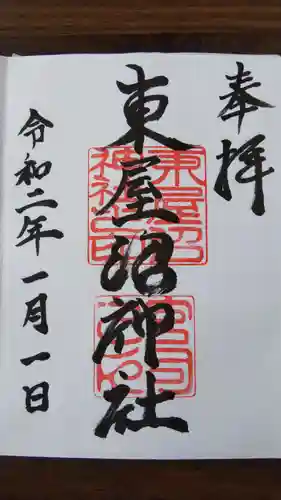 奉拝
東屋沼神社
令和二年一月一日
東屋沼
神社之印